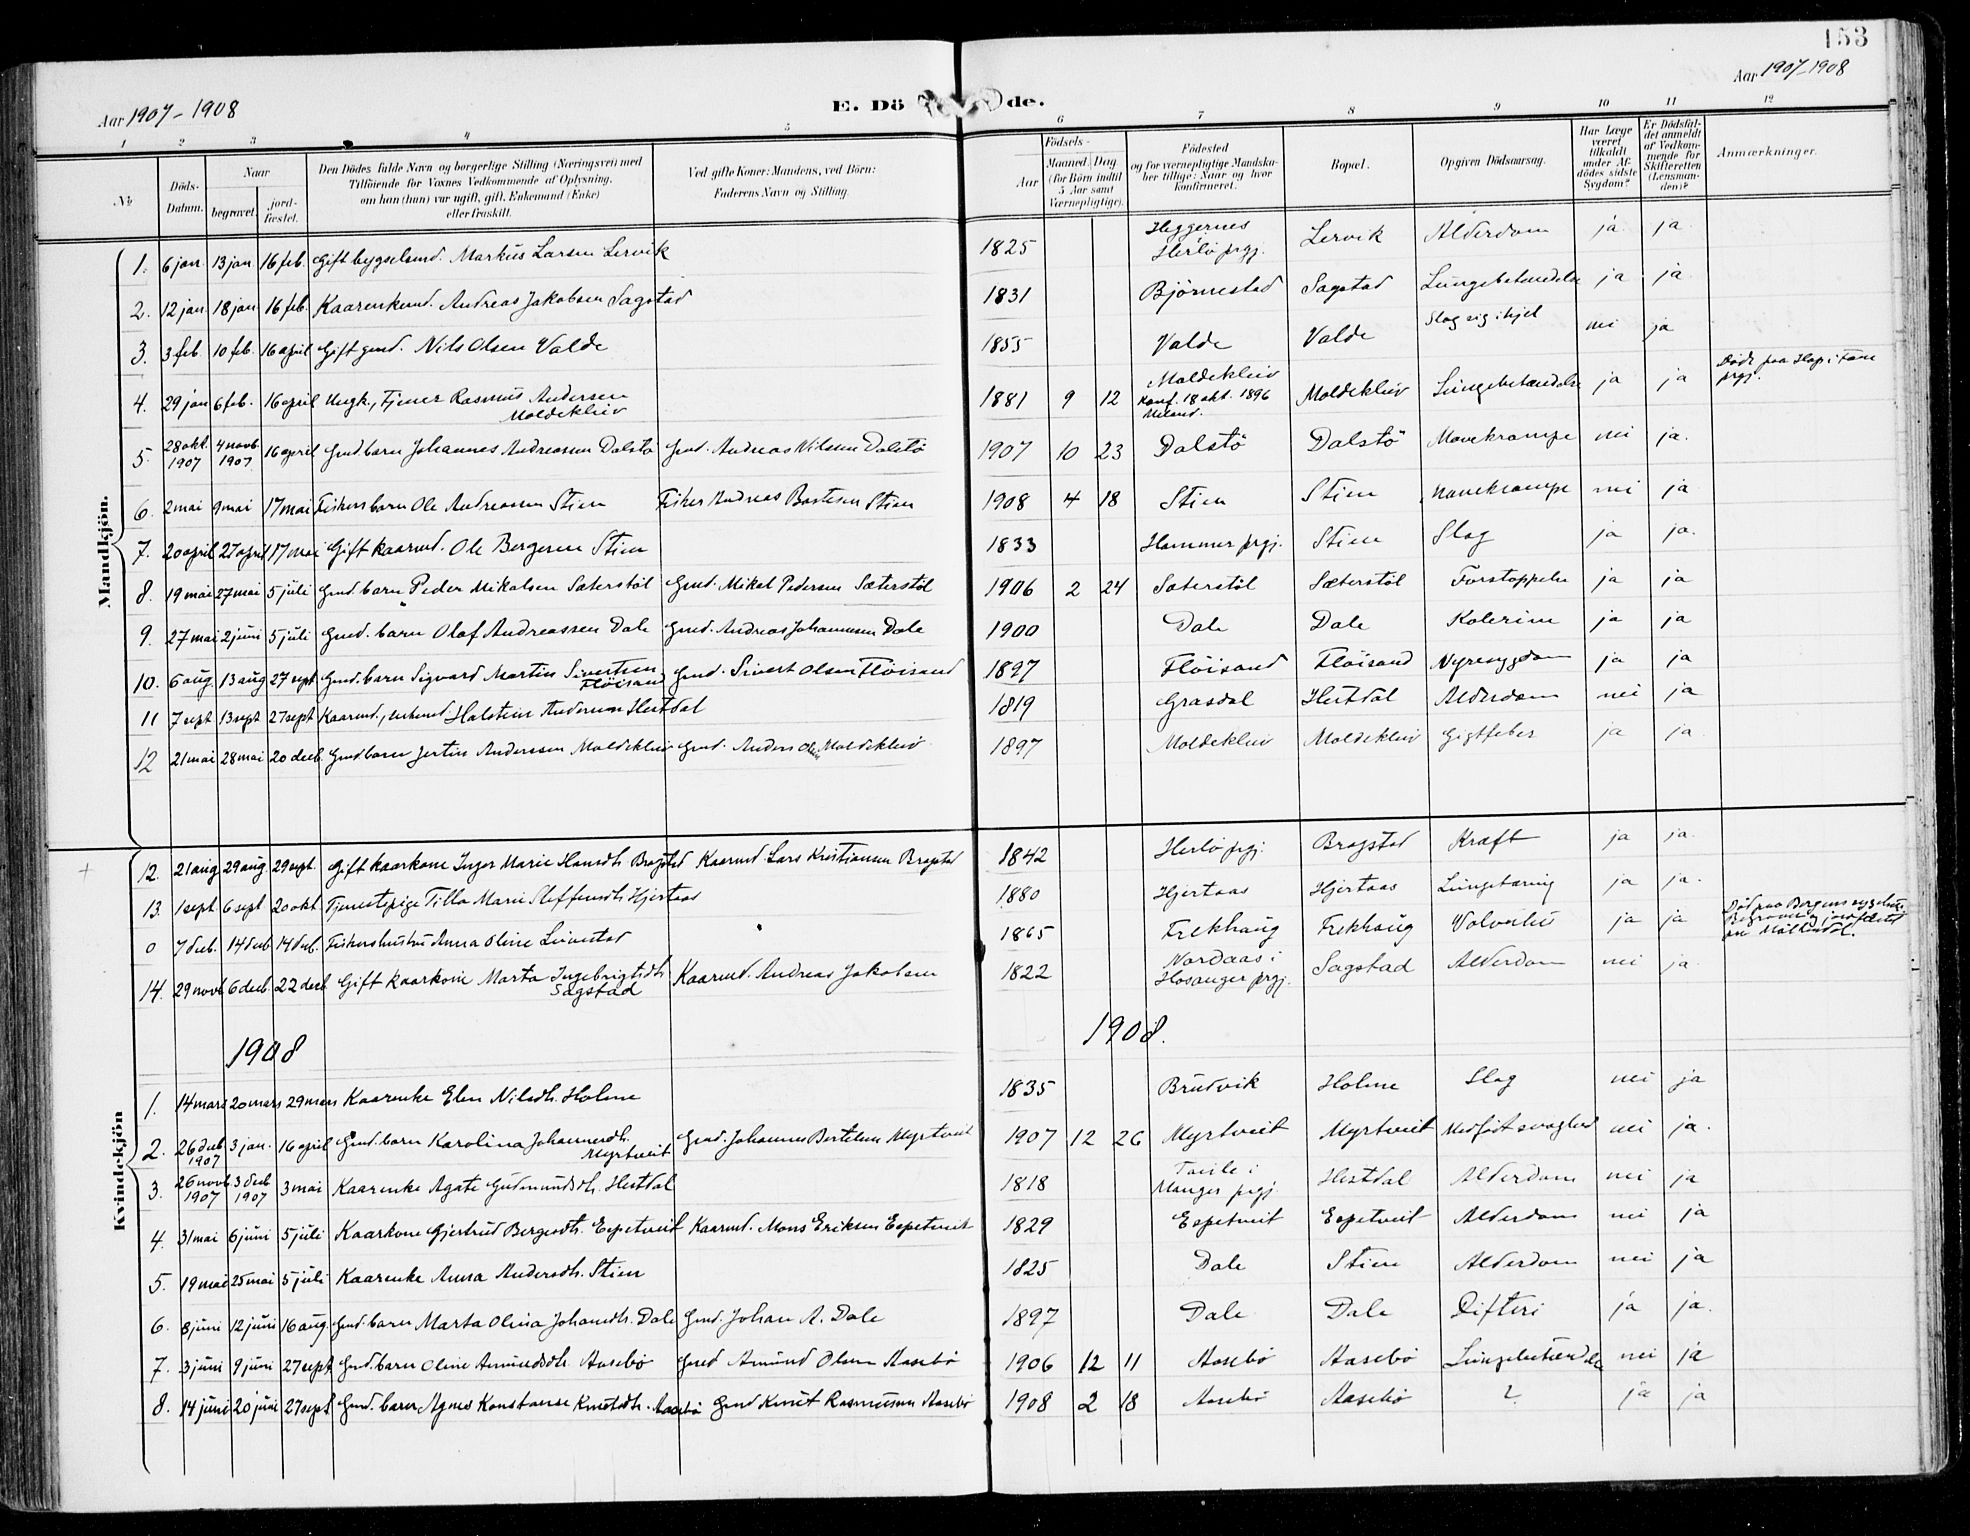 153
Aar 1907-1908
E. Döde.
Aar 1907-1908
1 2 3 4 5 6 7 8 9 10 11 12
№
Döds-Datum.
Naar
begravet.
jord-fæstet.
Den Dödes fulde Navn og borgerlige Stilling (Næringsvei) med
Tilföiende for Voxnes Vedkommende af Oplysning,
om han (hun) var ugift, gift, Enkemand (Enke)
eller fraskilt.
Ved gifte Koner: Mandens, ved Börn:
Faderens Navn og Stilling.
Födsels-
Aar
Maaned. Dag
(for Börn indtil
5 Aar samt
Værnepligtige).
Födested
og for værnepligtige Mandska-
ber tillige: Naar og hvor
konfirmeret.
Bopæl.
Opgiven Dödsaarsag.
Har Læge
været
tilkaldt
under Af-
dödes sidste
Sygdom?
Er Dödsfal-
det anmeldt
af Vedkom-
mende for
Skifteretten
(Lensman-
den)?
Anmærkninger.
Mandkjön.
1. 6 jan 13 jan 16 feb. Gift bygselmd. Markus Larsen Lervik 1825 Heggernes Herlö prgj. Lervik Alderdom ja ja
2. 12 jan 18 jan 16 feb. Kaarenkemd. Andreas Jakobsen Sagstad 1831 Björnestad Sagstad Lungebetændelse ja ja
3. 3 feb. 10 feb. 16 april Gift gmd. Nils Olsen Valde 1855 Valde Valde Slog sig ihjel nei ja
4. 29 jan 6 feb. 16 april Ungk., Tjener Rasmus Andersen Moldekleiv 1881 9 12 Moldekleiv Konf. 18 okt. 1896 Meland. Moldekleiv Lungebetændelse ja ja Död paa Hop i Fane prgj.
5. 28 okt. 1907 4 novb. 1907 16 april Gmd barn Johannes Andreassen Dalstö Gmd. Andreas Nilssen Dalstö 1907 10 23 Dalstö Dalstö Mavekrampe nei ja.
6. 2 mai 9 mai 17 mai Fiskers barn Ole Andreassen Stien Fisker Andreas Bastesen Stien 1908 4 18 Stien Stien Mavekrampe nei ja
7. 20 april 27 april 17 mai Gift kaarmd. Ole Bergesen Stien 1833 Hammer prgj. Stien Slag ja ja.
8. 19 mai 27 mai 5 juli Gmd. barn Peder Mikalsen Sæterstöl Gmd. Mikal Pedersen Sæterstöl 1906 2 24 Sæterstöl Sæterstöl Forstoppelse ja ja
9. 27 mai 2 juni 5 juli Gmd. barn Olaf Andreassen Dale Gmd. Andreas Johannessen Dale 1900 Dale Dale Kolerine ja ja
10. 6 aug. 13 aug 27 sept Gmd. barn Sigvard Martin Sivertsen Flöisand Gmd. Sivert Olsen Flöisand 1897 Flöisand Flöisand Nyresygdom ja ja
11 7 sept 13 sept 27 sept Kaarmd., enkemd Halstein Andersen Hestdal 1819 Grasdal Hestdal Alderdom nei ja
12 21 mai 28 mai 20 decb. Gmd barn Andersen Moldekleiv Gmd. Anders Olsen Moldekleiv 1897 Moldekleiv Moldekleiv Gigtfeber ja ja
Kvindekjön
12. 21 aug 29 aug. 29 sept. Gift kaarkone Inger Marie Hansdtr. Brogstad Kaarmd. Lars Kristiansen Brogstad 1842 Herlö prgj. Brogstad Kræft ja ja.
13. 1 sept 6 sept 20 okt Tjenestepige Tilla Marie Steffensdtr. Hjertaas 1880 Hjertaas Hjertaas Lungetæring ja ja.
0 7 decb. 14 decb 14 decb. Fiskershustru Anna Oline 1865 Frekhaug Frekhaug ja ja Död paa Bergens sygehus. Begravet og jordfæstet
14. 29 novb 6 decb. 22 decb. Gift kaarkone Marta Ingebrigtsdtr. Sagstad Kaarmd. Andreas Jakobsen 1822 Nordaas i Hosanger prgj. Sagstad Alderdom nei ja.
1908 1908.
1. 14 mars 20 mars 29 mars Kaarenke Elen Nilsdtr. Holme 1835 Brudvik Holme Slag nei ja
2. 26 decb 1907 3 jan. 16 april Gmd. barn Karolina Johannesdtr. Myrtveit Gmd. Johannes Bertelsen Myrtveit 1907 12 26 Myrtveit Myrtveit Medfödt svaghed nei ja.
3. 26 novb 1907 3 decb 1907 3 mai Kaarenke Agate Gudmundsdtr. Hestdal 1818 Manger prgj Hestdal Alderdom nei ja
4. 31 mai 6 juni 5 juli Kaarkone Gjertrud Bergesdtr. Espetveit Kaarmd. Mons Eriksen Espetveit 1829 Espetveit Espetveit Alderdom nei ja
5. 19 mai 25 mai 5 juli Kaarenke Anna Andersdtr. Stien 1825 Dale Stien Alderdom nei ja
6. 8 juni 12 juni 16 aug. Gmd. barn Marta Olina Johansdtr. Dale Gmd. Johan A. Dale 1897 Dale Dale Difteri ja ja.
7. 3 juni 9 juni 27 sept. Gmd. barn Oline Amundsdtr. Aasebö Gmd Amund Olsen Aasebö 1906 12 11 Aasebö Aasebö Lungebetændelse nei ja
8. 14 juni 20 juni 27 sept Gmd. barn Agnes Konstanse Knutsdtr. Aasebö Gmd Knut Rasmussen Aasebö 1908 2 18 Aasebö Aasebö ? ja ja